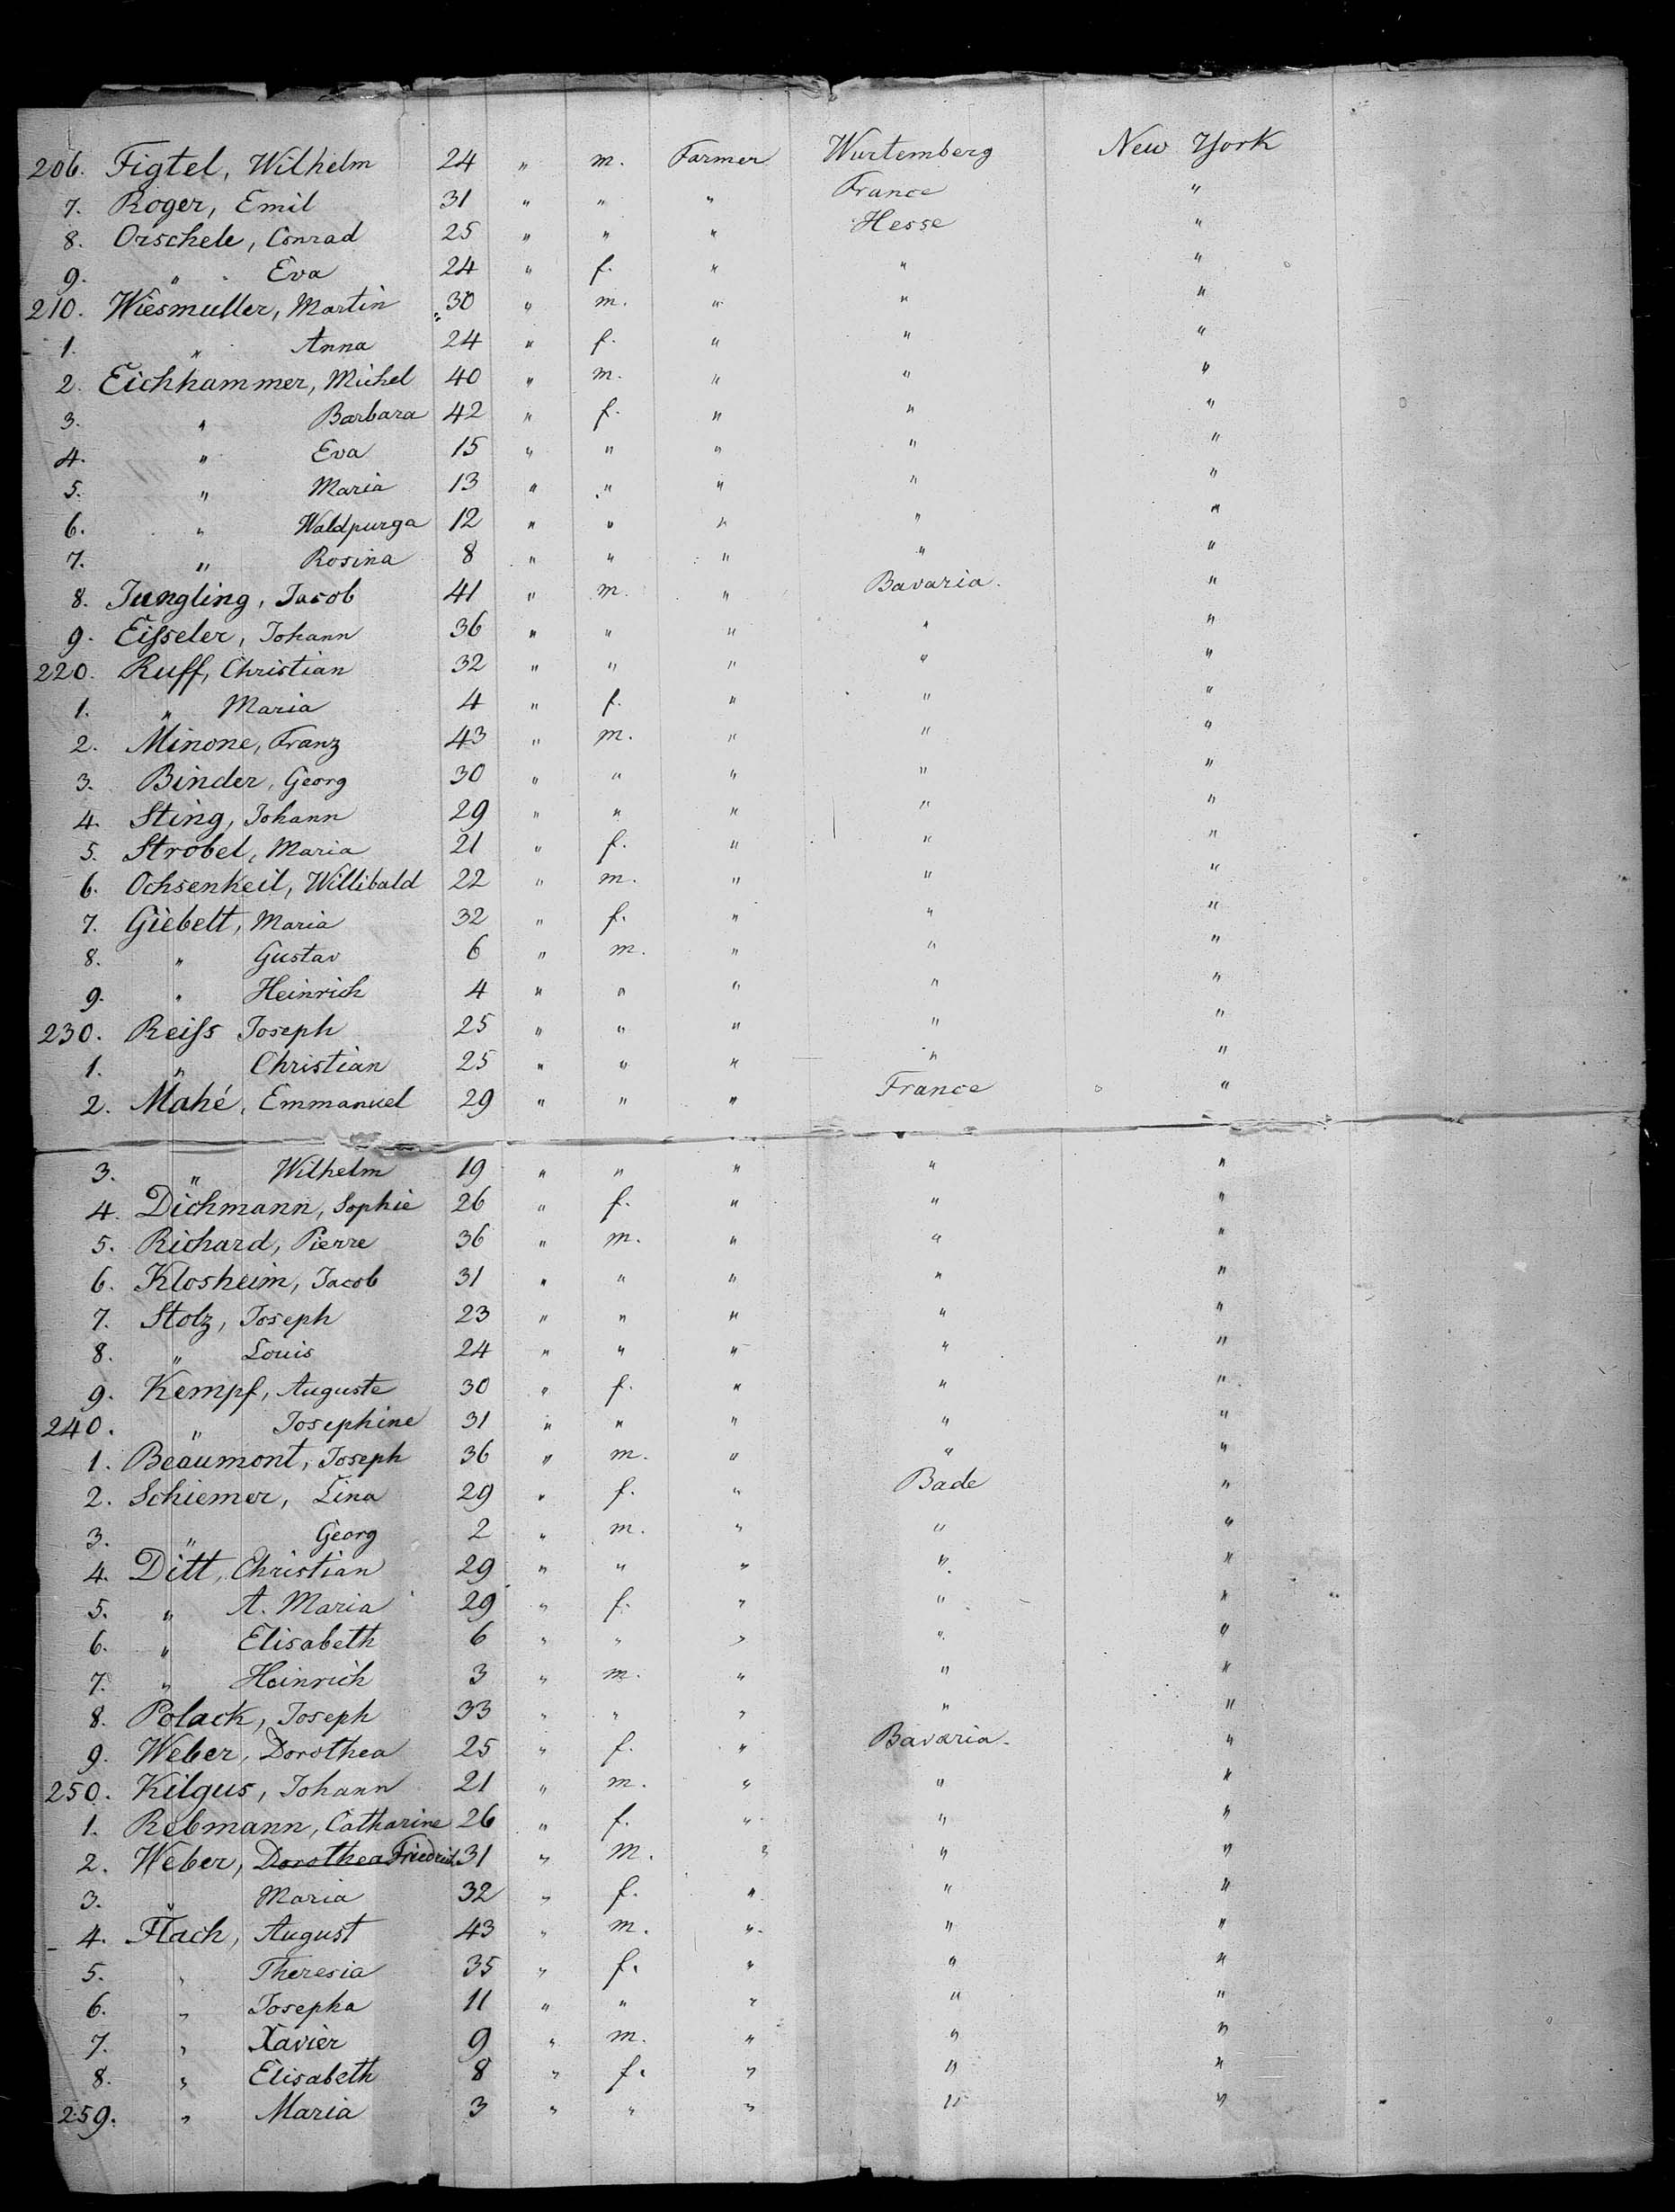 206. Figtel, Wilhelm 24 " m. Farmer Wurtemberg New York
7. Roger, Emil 31 " " " France "
8. Orschele, Conrad 25 " " " Hesse "
9. " Eva 24 " f. " " "
210. Wiesmuller, Martin 30 " m. " " "
1. " Anna 24 " f. " " "
2. Eichhammer, Michel 40 " m. " " "
3. " Barbara 42 " f. " " "
4. " Eva 15 " " " " "
5. " Maria 13 " " " " "
6. " Waldpurga 12 " " " " "
7. " Rosina 8 " " " " "
8. Jungling, Jacob 41 " m. " Bavaria. "
9. Eifseler, Johann 36 " " " " "
220. Ruff, Christian 32 " " " " "
1. " Maria 4 " f. " " "
2. Minone, Franz 43 " m. " " "
3. Binder, Georg 30 " " " " "
4. Sting, Johann 29 " " " " "
5. Strobel, Maria 21 " f. " " "
6. Ochsenkeil, Willibald 22 " m. " " "
7. Giebelt, Maria 32 " f. " " "
8. " Gustav 6 " m. " " "
9. " Heinrich 4 " " " " "
230. Reifs Joseph 25 " " " " "
1. " Christian 25 " " " " "
2. Mahé, Emmanuel 29 " " " France "
3. " Wilhelm 19 " " " " "
4. Dichmann, Sophie 26 " f. " " "
5. Richard, Pierre 36 " m. " " "
6. Klosheim, Jacob 31 " " " " "
7. Stolz, Joseph 23 " " " " "
8. " Louis 24 " " " " "
9. Kempf, Auguste 30 " f. " " "
240. " Josephine 31 " " " " "
1. Beaumont, Joseph 36 " m. " " "
2. Schiemer, Lina 29 " f. " Bade "
3. " Georg 2 " m. " " "
4. Ditt, Christian 29 " " " " "
5. " A. Maria 29 " f. " " "
6. " Elisabeth 6 " " " " "
7. " Heinrich 3 " m. " " "
8. Polack, Joseph 33 " " " " "
9. Weber, Dorothea 25 " f. " Bavaria. "
250. Kilgus, Johann 21 " m. " " "
1. Rebmann, Catharine 26 " f. " " "
2. Weber, Dorothea Friedrich 31 " m. " " "
3. " Maria 32 " f. " " "
4. Flach, August 43 " m. " " "
5. " Theresia 35 " f. " " "
6. " Josepha 11 " " " " "
7. " Xavier 9 " m. " " "
8. " Elisabeth 8 " f. " " "
259. " Maria 3 " " " " "